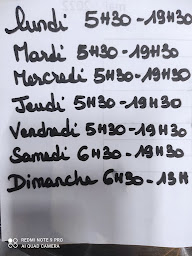 lundi 5H30-19H30
Mardi 5H30-19H30
Mercredi 5H30-19H30
Jeudi 5H30-19H30
Vendredi 5H30-19H30
Samedi 6H30-19H30
Dimanche 6H30-13H
REDMI NOTE 8 PRO
AI QUAD CAMERA